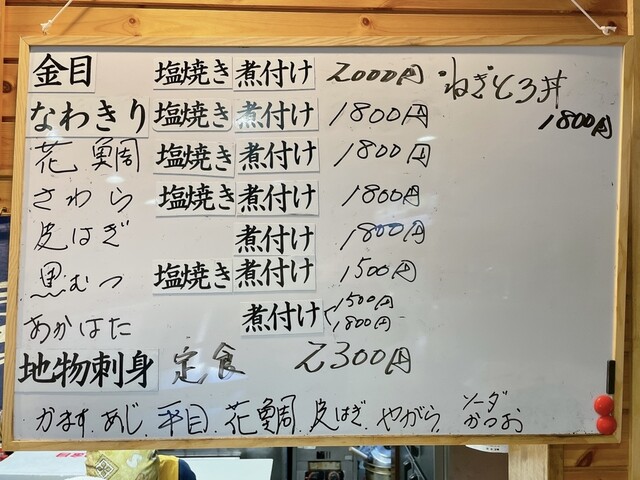 金目 塩焼き 煮付け 2000円
なわきり 塩焼き 煮付け 1800円
花鯛 塩焼き 煮付け 1800円
さわら 塩焼き 煮付け 1800円
皮はぎ 煮付け 1800円
黒むつ 塩焼き 煮付け 1500円
あかはた 煮付け 1500円 1800円
地物刺身 定食 2300円
かます. あじ. 平目. 花鯛. 皮はぎ. やがら. ソーダかつお
・ねぎとろ丼
1800円